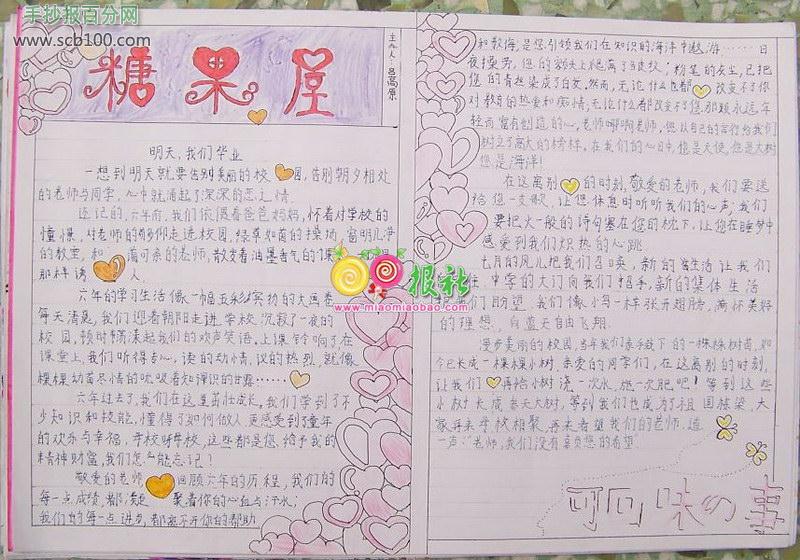 手抄报百分网
www.scb100.com
糖果屋
主人:吕高原
明天,我们毕业
一想到明天就要告别美丽的校园,告别朝夕相处
的老师与同学,心中就涌起了深深的恋之情
还记的,六年前,我们依偎着爸爸妈妈,怀着对学校的
憧憬,对老师的敬仰走进校园,绿草如茵的操场,窗明几净
的教室,和 可亲的老师,散发着油墨香气的课
那样诱人
六年的学习生活像一幅五彩宾纷的大画卷
每天清晨,我们迎着朝阳走进学校,沉寂了一夜的
校园,顿时荡漾起我们的欢声笑语,上课铃响了在
课堂上,我们听得专心,读的动情,议的热烈,就像
棵棵幼苗尽情的吮吸着知识的甘露……
六年过去了,我们在这里茁壮成长,我们学到了不
少知识和技能,懂得了如何做人,更感受到了童年
的欢乐与幸福,学校呀学校,这些都是您给予我的
精神财富,我们怎能忘记!
敬爱的老师 回顾六年的历程,我们的
每一点成绩,都凝聚着你的心血与汗水;
我们的每一点进步,都离不开你的帮助
和教悔,是您引领我们在知识的海洋中遨游……日
夜操劳,您的额头上绝满了皱纹;粉笔的灰尘,已把
您的青丝染成了白发,然而,无论什么也都改变不了你
对教育的热爱和痴情,无论什么都改变不了您那颗永远年
轻而富有创造的心,老师啊老师,您以自己的言行给我们
树立了高大的榜样。在我们的心目中,您是天使,您是大树
您是海洋!
在这离别的时刻,敬爱的老师,我们要送
给您一支歌,让您休息时听听我们的心声;我们
要把火一般的诗句塞在您的枕下,让您在睡梦中
感受到我们炽热的心跳
七月的风儿把我们召唤,新的生活让我们
中学的大门向我们招手,新的集体生活
我们盼望,我们像小鸟一样张开翅膀,满怀美好
的理想,向蓝天自由飞翔.
漫步美丽的校园,当年我们亲手栽下的一棵棵树苗,如
今已长成一棵棵小树,亲爱的同学们,在这离别的时刻,
让我们再给小树浇一次水,施一次肥吧!等到这些
小树长成参天大树,等到我们也成为了祖国栋梁,大
家再来学校相聚,再来看望我们的老师,道
一声"老师,我们没有辜负您的希望"
报社
www.miaomiaobao.com
可回味の事